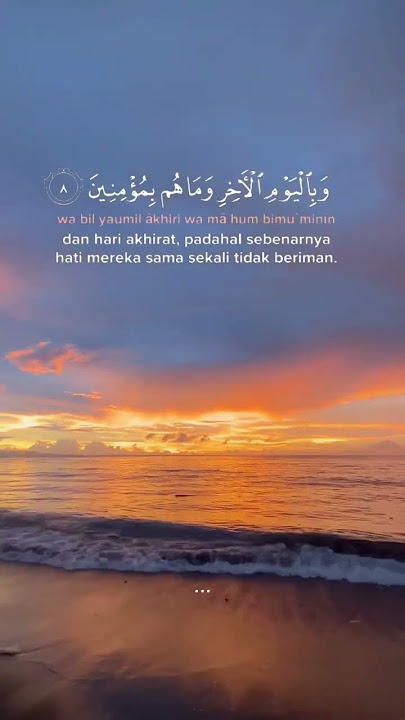 وَبِٱلْيَوْمِ ٱلْأَخِرِ وَمَا هُم بِمُؤْمِنِينَ ٨
wa bil yaumil ākhiri wa mā hum bimu`minīn
dan hari akhirat, padahal sebenarnya
hati mereka sama sekali tidak beriman.
...